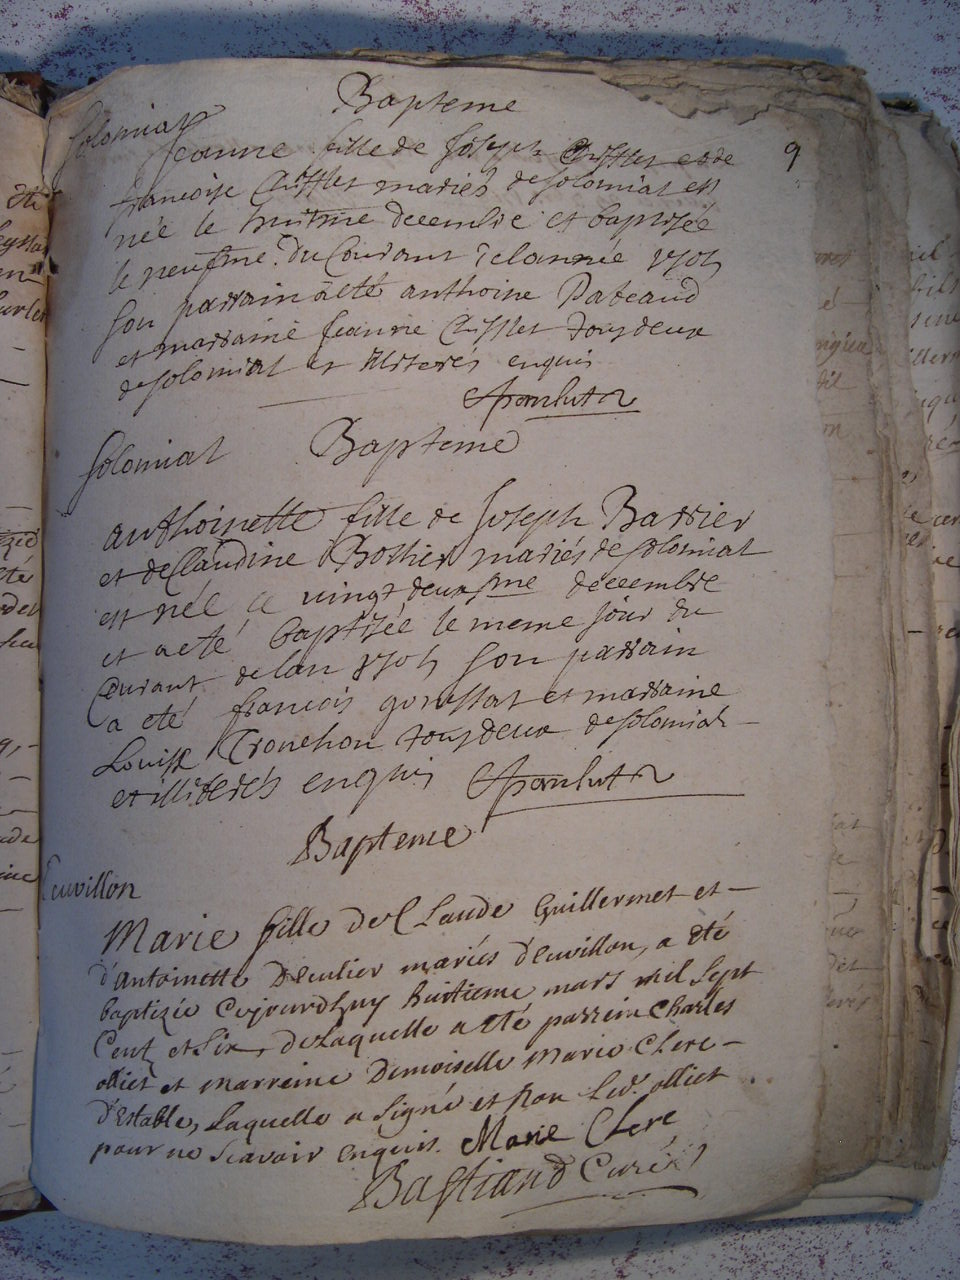 Bapteme
Solomiat
9
Jeanne fille de Joseph Chifflet et de
francoise Chifflet mariés de solomiat est
née le huitme decembre et baptisée
le neufme du Courant de lannée 1705
son parrain a eté anthoine Pateaud
et marraine Jeanne Chifflet tous deux
de solomiat et illiterés enquis
Bapteme
Solomiat
anthoinette fille de Joseph Barrier
et de Claudine Bottier mariés de solomiat
est née ce vingt deuxsme decembre
et a eté baptisée le meme jour du
Courant de lan 1705 son parrain
a eté francois goussat et marraine
Louise Tronchon tous deux de solomiat
et illiterés enquis
Bapteme
Euvillon
Marie fille de Claude Guillermet et
d'antoinette Deculier mariés d'euvillon, a eté
baptizée Cejourdhuy huitieme mars mil sept
Centz et six, de Laquelle a eté parrein Charles
olliet et marreine Demoiselle Marie Clerc
d'Estable, Laquelle a signé et Non Led. olliet
pour ne scavoir enquis. Marie Clerc
Bastiand Curé